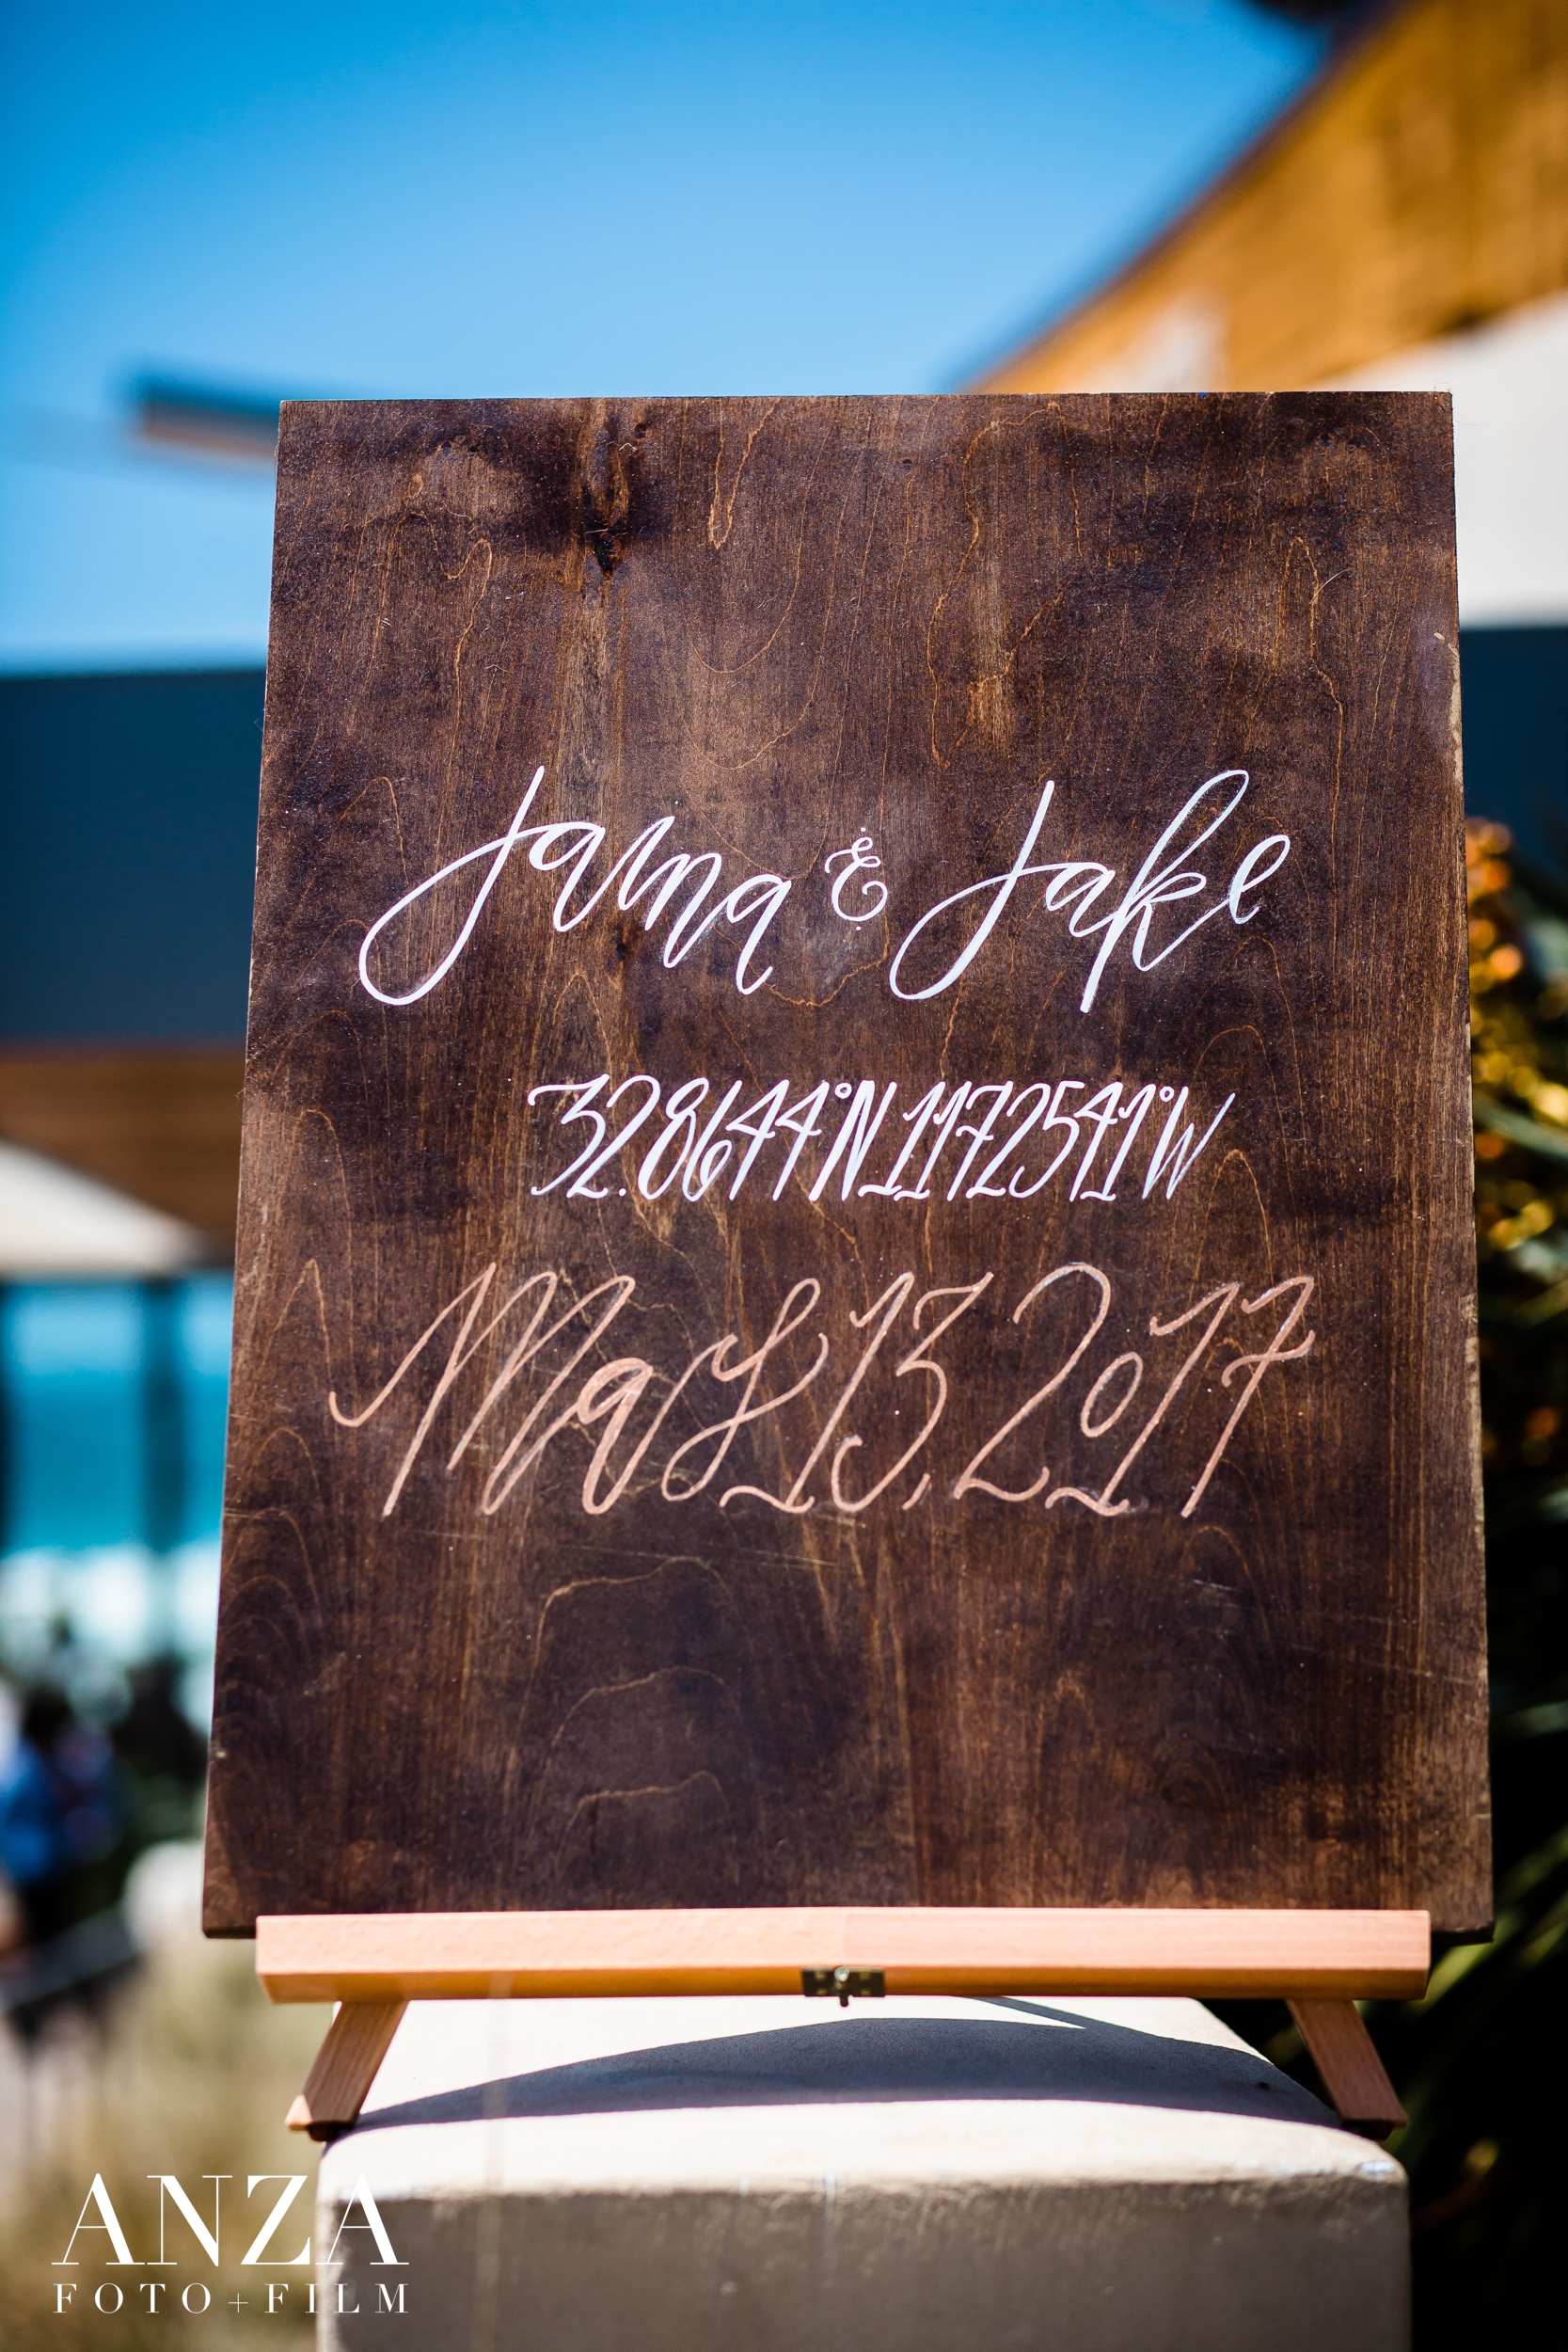 Jama & Jake
32.8644°N,117.2541°W
May 13, 2017
ANZA
FOTO+FILM